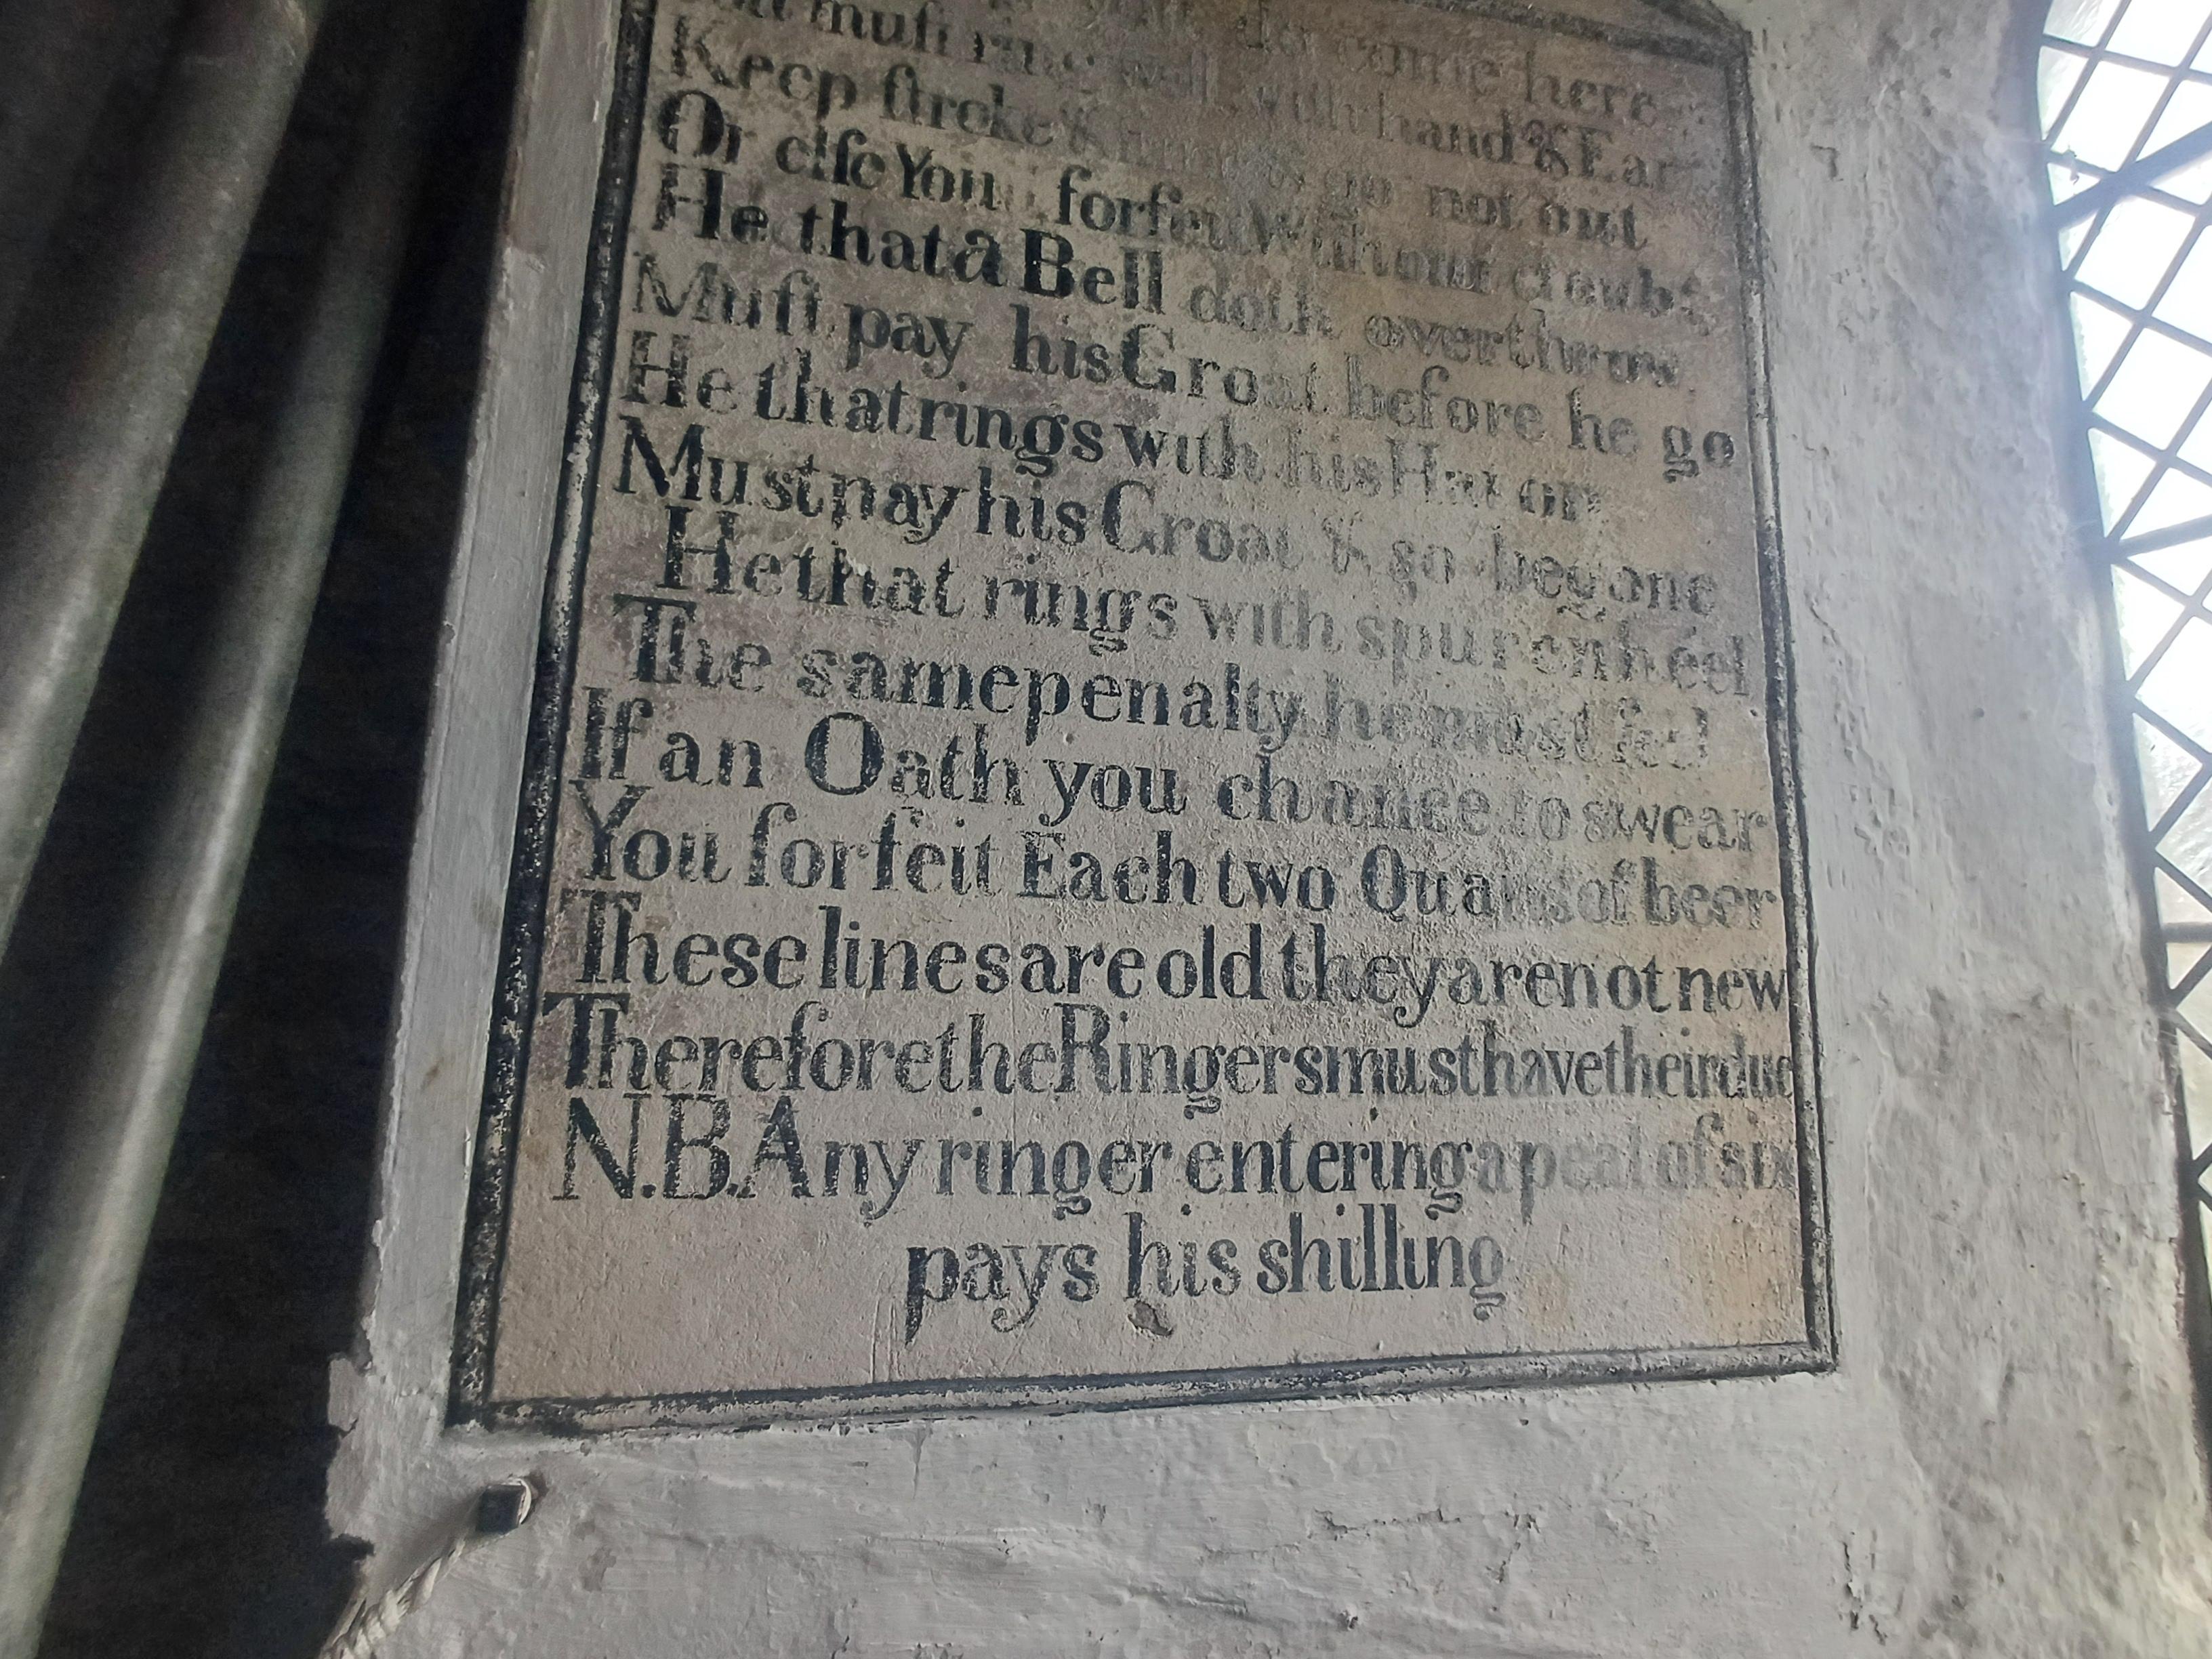 do come here
must ring well with hand & Ear
Keep stroke & time & go not out
Or else You forfeit Without doubt
He that a Bell doth overthrow
Must pay his Groat before he go
He that rings with his Hat on
Must pay his Groat & so begone
He that rings with spur on heel
The same penalty he must feel
If an Oath you chance to swear
You forfeit Each two Quarts of beer
These lines are old they are not new
Therefore the Ringers must have their due
N.B. Any ringer entering a peal of six
pays his shilling